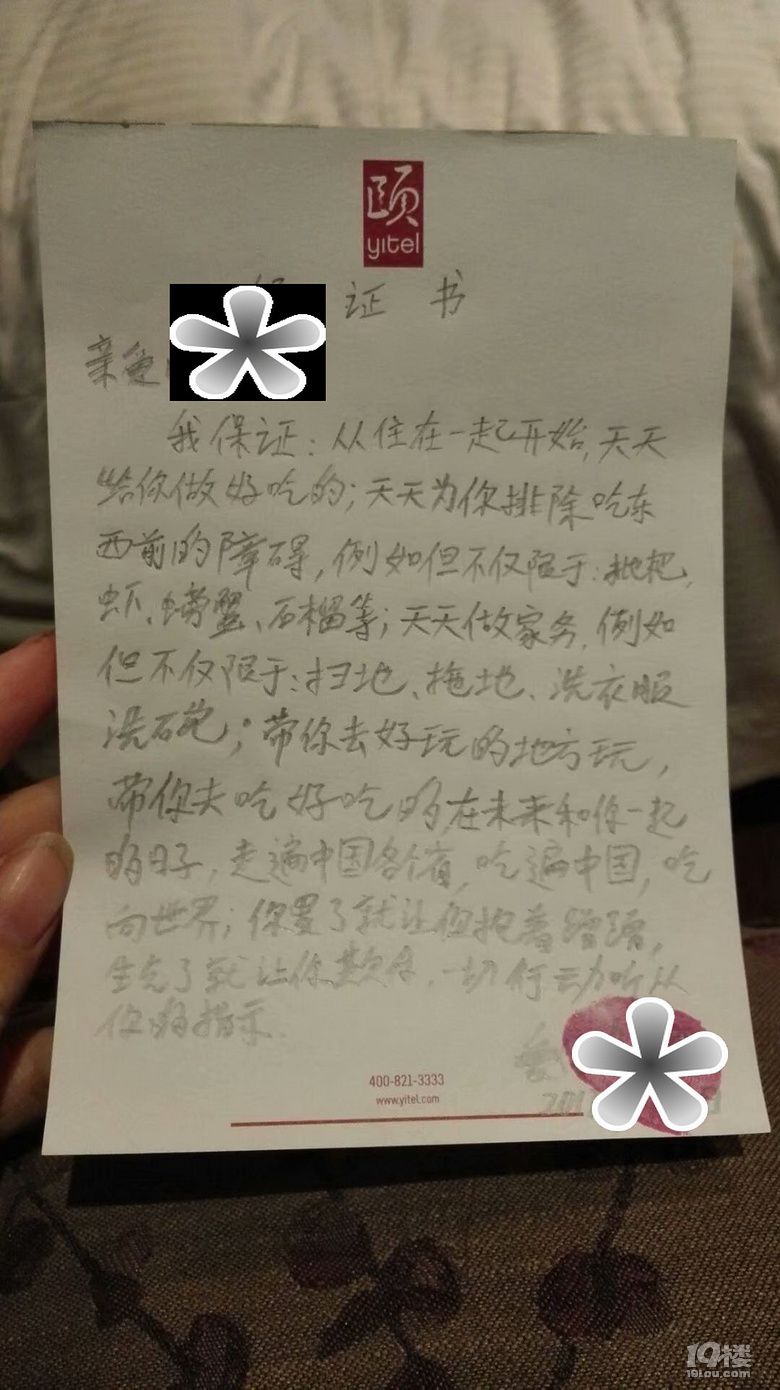 颐
yitel
证 书
亲爱
我保证:从住在一起开始,天天
给你做好吃的;天天为你排除吃东
西前的障碍,例如但不仅限于:枇杷、
虾、螃蟹、石榴等;天天做家务,例如
但不仅限于:扫地、拖地、洗衣服
洗碗;带你去好玩的地方玩,
带你去吃好吃的,在未来和你一起
的日子,走遍中国各个省,吃遍中国,吃
向世界;你累了就让你抱着蹭蹭,
生气了就让你欺负,一切行动听从
你的指示.
400-821-3333
www.yitel.com
201
19楼
19lou.com